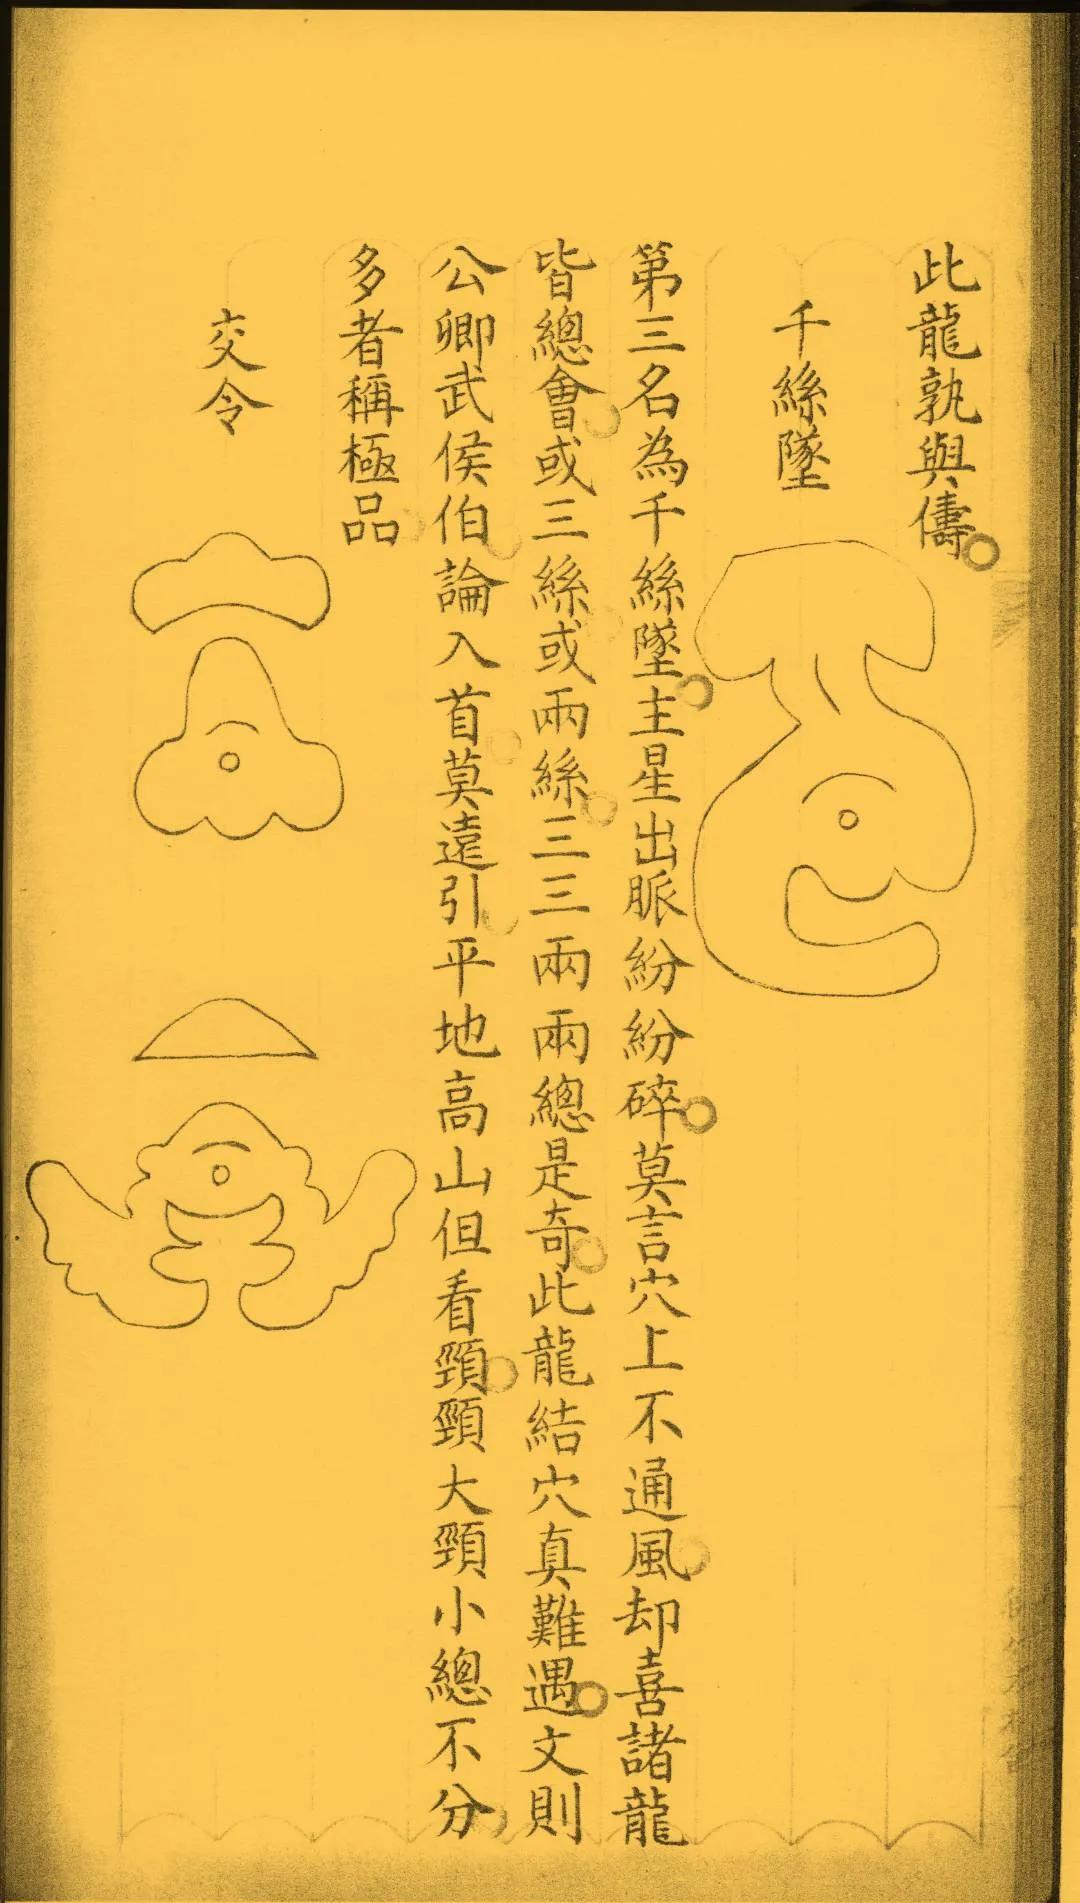 此龍孰與儔
千絲墜
第三名為千絲墜主星出脈紛紛碎莫言穴上不通風却喜諸龍
皆總會或三絲或兩絲三三兩兩總是奇此龍結穴真難遇文則
公卿武侯伯論入首莫遠引平地高山但看頸頸大頸小總不分
多者稱極品
交令